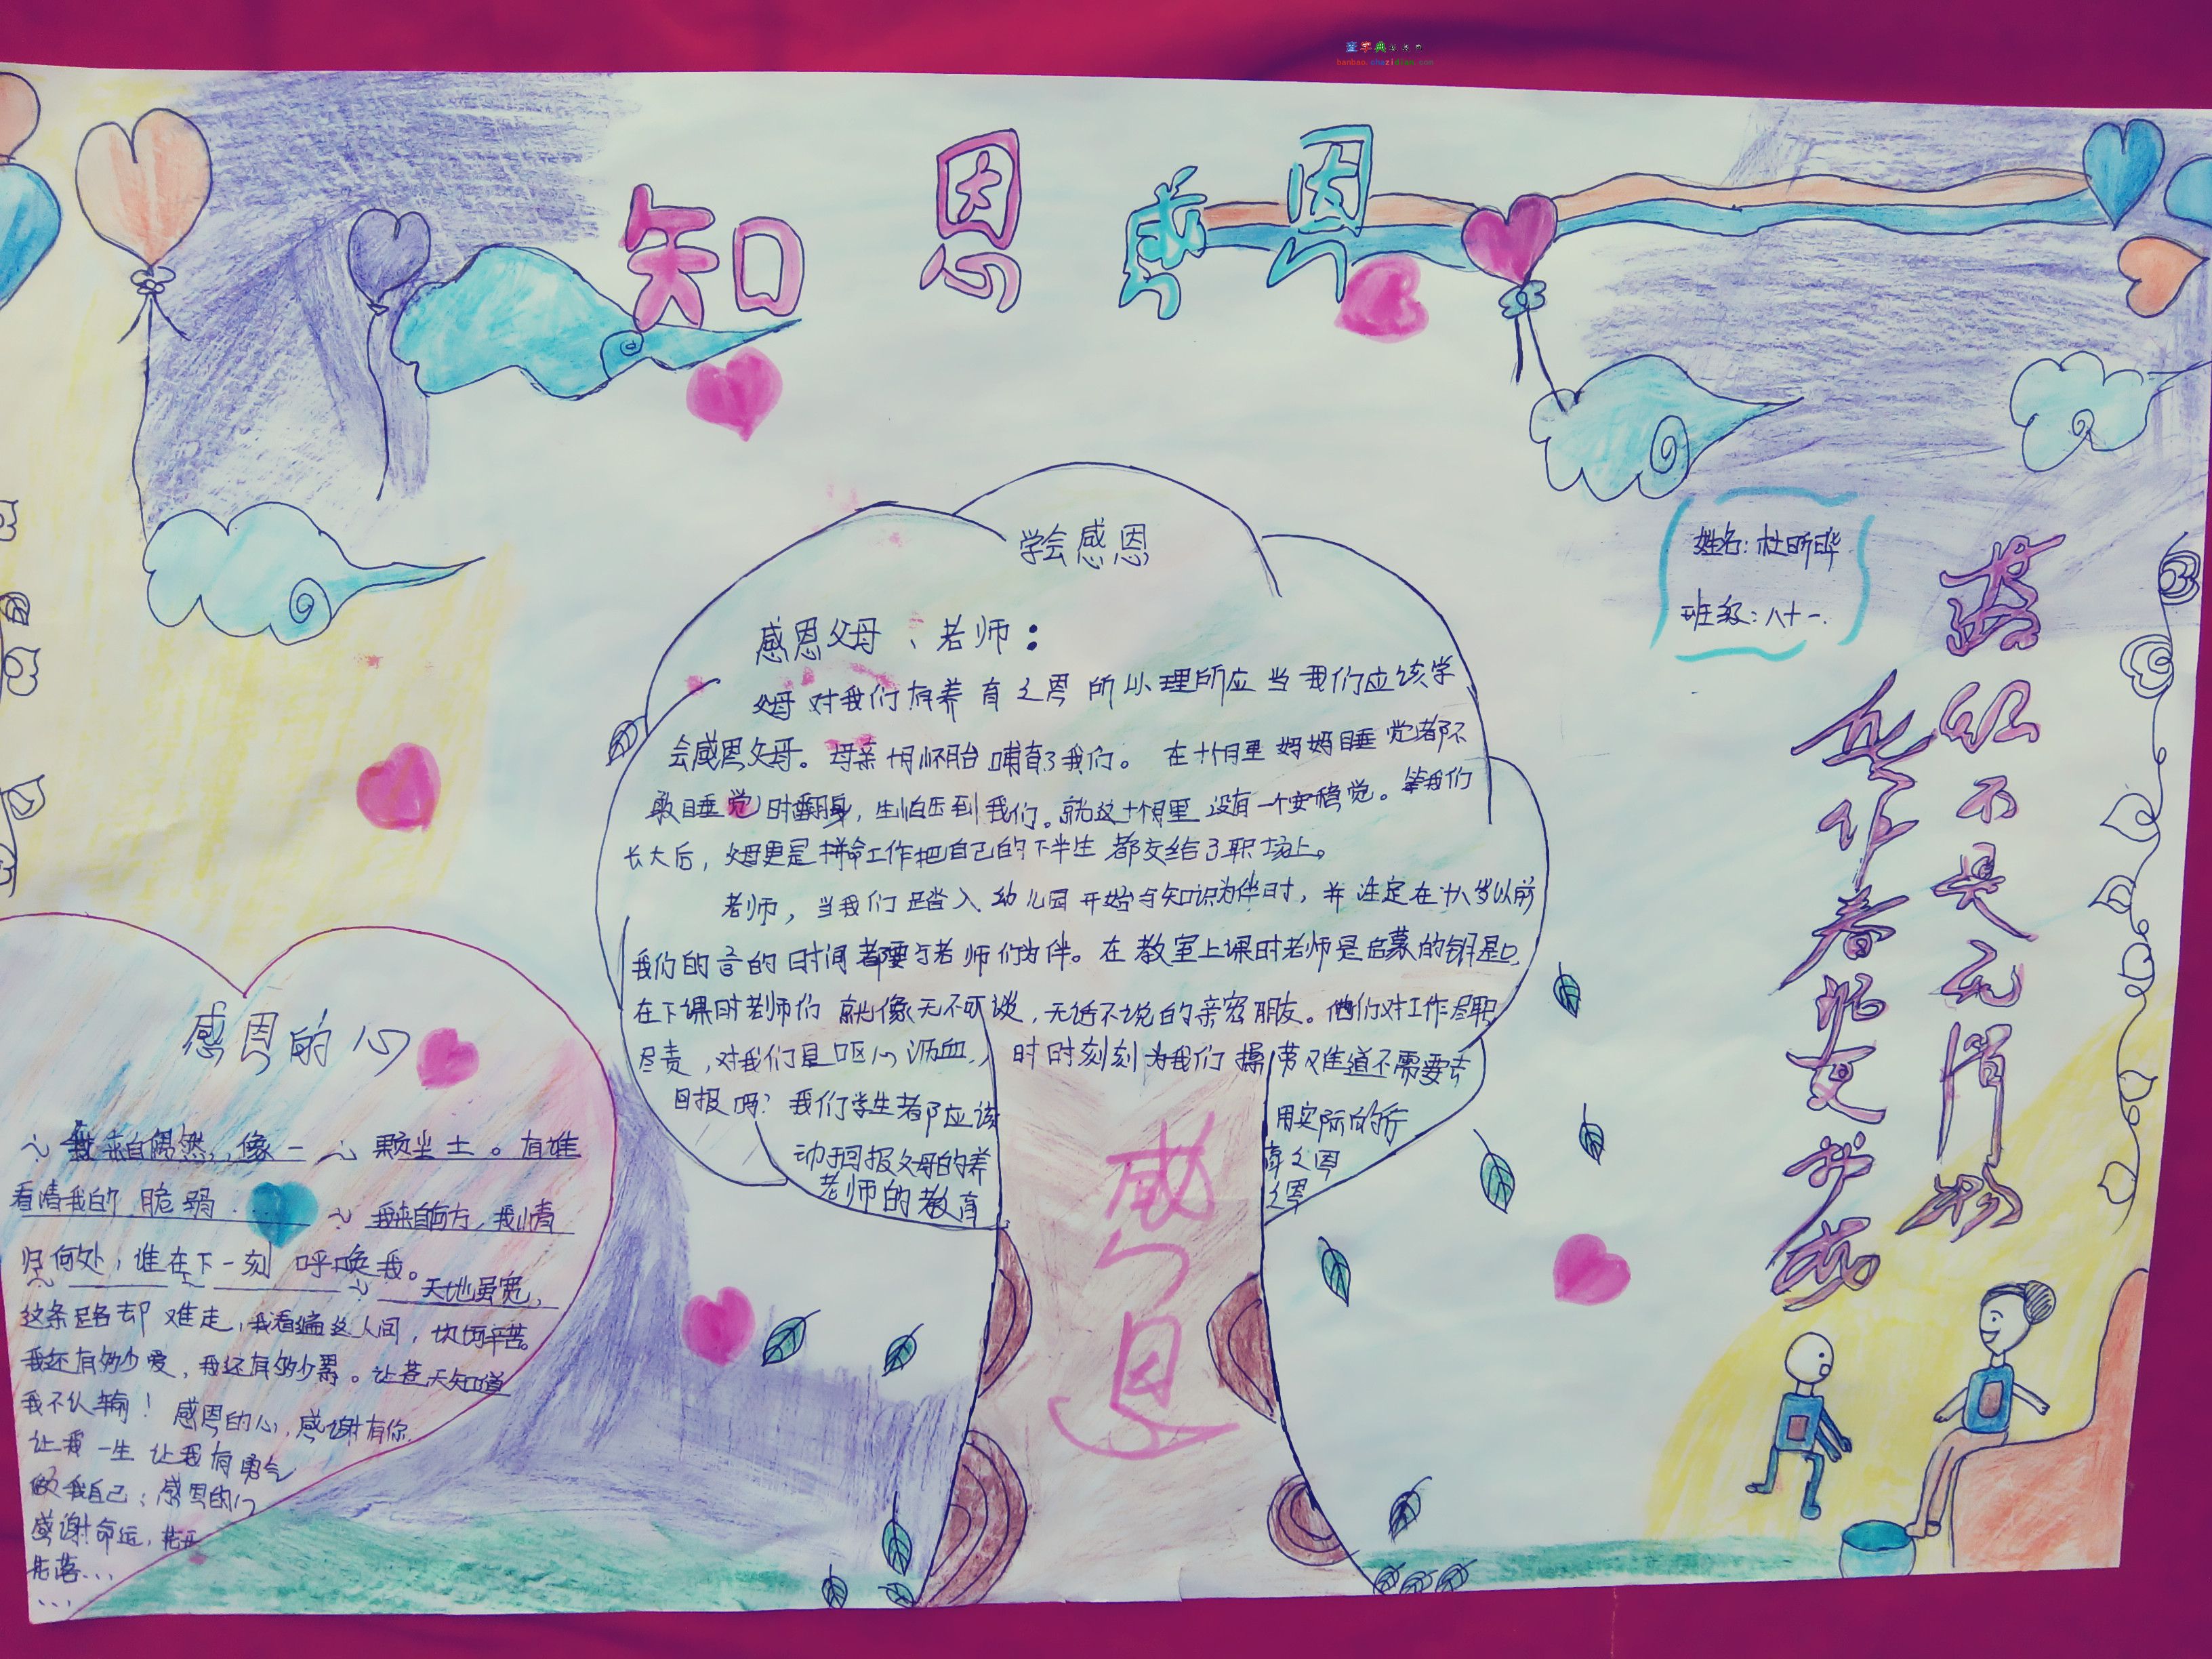 知恩感恩
姓名:杜昕晔
班级:八十一.
落红不是无情物
化作春泥更护花
学会感恩
感恩父母、老师:
父母对我们有养育之恩所以理所应当我们应该学
会感恩父母。母亲十月怀胎哺育了我们。在十个月里妈妈睡觉都不
敢睡觉时翻身,生怕压到我们。就这十个月里没有一个安稳觉。等我们
长大后,父母更是拼命工作把自己的下半生都交给了职场上。
老师,当我们踏入幼儿园开始与知识为伴时,并注定在十八岁以前
我们的时间都要与老师们为伴。在教室上课时老师是启蒙的钥匙
在下课时老师们就像无不可谈,无话不说的亲密朋友。他们对工作尽职
尽责,对我们是呕心沥血,时时刻刻为我们操劳难道不需要去
回报吗?我们学生都应该用实际的行
动于回报父母的养育之恩
老师的教育之恩
感恩
感恩的心
~我来自偶然,像一~颗尘土。有谁
看清我的脆弱.
~我来自何方,我情
归何处,谁在下一刻呼唤我。
~天地虽宽,
这条路却难走,我看遍这人间,坎坷辛苦。
我还有多少爱,我还有多少累。让苍天知道
我不认输!感恩的心,感谢有你.
让我一生让我有勇气
做我自己;感恩的心
感谢命运,花开
花落...
...
banbao.chazidian.com